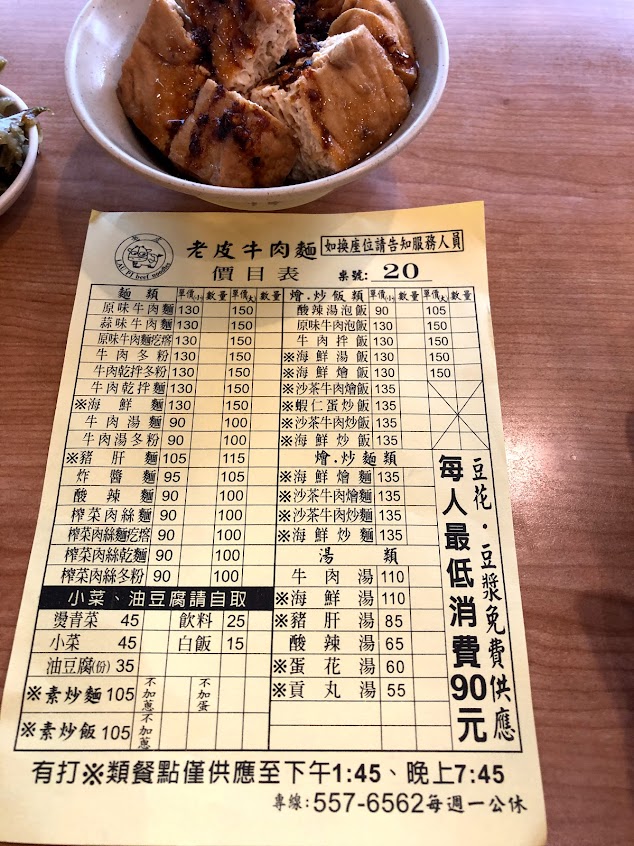 老皮牛肉麵 如換座位請告知服務人員
LAU PI beef noodles
價目表 桌號: 20
麵類 單價小 數量 單價大 數量 燴.炒飯類 單價小 數量 單價大 數量
原味牛肉麵 130 150 酸辣湯泡飯 90 105
蒜味牛肉麵 130 150 原味牛肉泡飯 130 150
原味牛肉麵疙瘩 130 150 牛肉拌飯 130 150
牛肉冬粉 130 150 ※海鮮湯飯 130 150
牛肉乾拌冬粉 130 150 ※海鮮燴飯 130 150
牛肉乾拌麵 130 150 ※沙茶牛肉燴飯 135
※海鮮麵 130 150 ※蝦仁蛋炒飯 135
牛肉湯麵 90 100 ※沙茶牛肉炒飯 135
牛肉湯冬粉 90 100 ※海鮮炒飯 135
※豬肝麵 105 115 燴.炒麵類
炸醬麵 95 105 ※海鮮燴麵 135
酸辣麵 90 100 ※沙茶牛肉燴麵 135
榨菜肉絲麵 90 100 ※沙茶牛肉炒麵 135
榨菜肉絲麵疙瘩 90 100 ※海鮮炒麵 135
榨菜肉絲乾麵 90 100 湯類
榨菜肉絲冬粉 90 100 牛肉湯 110
小菜、油豆腐請自取 ※海鮮湯 110
燙青菜 45 飲料 25 ※豬肝湯 85
小菜 45 白飯 15 酸辣湯 65
油豆腐(份) 35 ※蛋花湯 60
※素炒麵 105 不加蔥 不加蛋 ※貢丸湯 55
※素炒飯 105 不加蔥
豆花.豆漿免費供應
每人最低消費90元
有打※類餐點僅供應至下午1:45、晚上7:45
專線:557-6562每週一公休